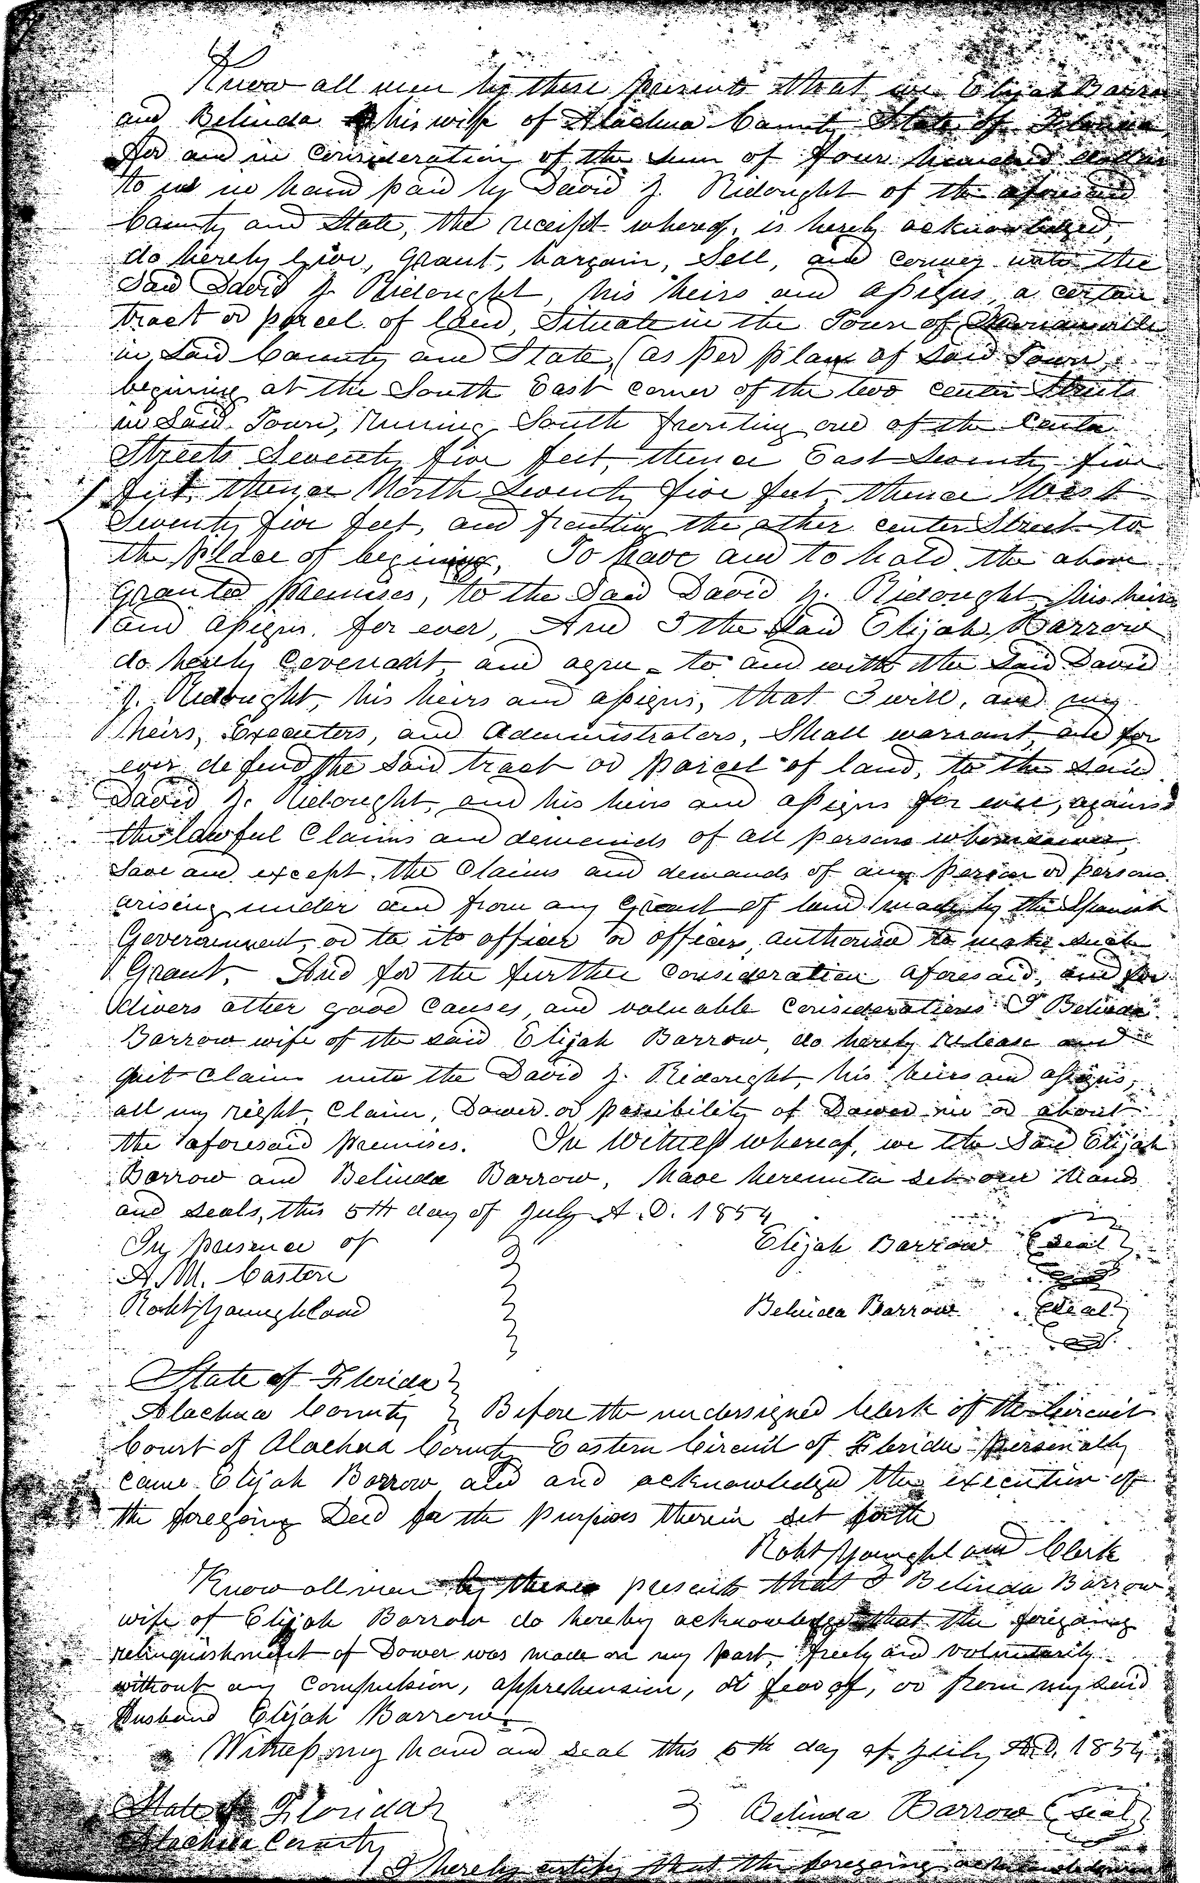 Know all men by these presents that we Elijah Barrow
and Belinda his wife of Alachua County State of Florida
for and in consideration of the sum of four hundred dollars
to us in hand paid by David J. Ridought of the aforesaid
County and State, the receipt whereof, is hereby acknowledged,
do hereby Give, Grant, bargain, Sell, and convey unto the
Said David J. Ridought, his heirs and assigns, a certain
tract or parcel of land, Situate in the Town of
in Said County and State, (as per plan of Said Town,
begining at the South East corner of the two center Streets
in Said Town, running South fronting one of the Center
Streets Seventy five feet, thence East Seventy five
feet, thence North Seventy five feet, thence West
Seventy five feet, and fronting the other center Street to
the place of begining, To have and to hold the above
granted premises, to the Said David J. Ridought, his heirs
and assigns for ever, And I the Said Elijah Barrow
do hereby Covenant, and agree to and with the Said David
J. Ridought, his heirs and assigns, that I will, and my
heirs, Executers, and Administrators, Shall warrant and for
ever defend the Said tract or parcel of land, to the Said
David J. Ridought, and his heirs and assigns for ever, against
the lawful Claims and demands of all persons whomsoever,
Save and except, the Claims and demands of any person or persons
arising under and from any Grant of land made by the Spanish
Government, or to its officer or officers, authorised to make such
Grant, And for the further consideration aforesaid, and for
divers other good causes, and valuable considerations I Belinda
Barrow wife of the said Elijah Barrow, do hereby release and
quit claim unto the David J. Ridought, his heirs and assigns,
all my right, Claim, Dower or possibility of Dower in or about
the aforesaid premises. In Witness whereof, we the Said Elijah
Barrow and Belinda Barrow, have hereunto set our hands
and seals, this 5th day of July A.D. 1854
In presence of Elijah Barrow (seal)
A. M. Caston
Robt Youngbland Belinda Barrow (seal)
State of Florida
Alachua County Before the undersigned Clerk of the Circuit
Court of Alachua County Eastern Circuit of Florida personally
came Elijah Barrow and and acknowledged the execution of
the foregoing Deed for the purposes therein set forth
Robt Youngbland Clerk
Know all men by these presents that I Belinda Barrow
wife of Elijah Barrow do hereby acknowledge that the foregoing
relinquishment of Dower was made on my part, freely and voluntarily
without any compulsion, apprehension, or fear of, or from my said
Husband Elijah Barrow.
Witness my hand and seal this 5th day of July A.D. 1854
State of Florida Belinda Barrow (seal)
Alachua County
I hereby certify that the foregoing acknowledgment